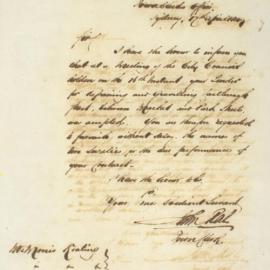 Town Clerk's Office,
Sydney, 17th
Sir,
I have the honor to inform you
that at a Meeting of the City Council
holden on the 16th instant, your Tender
for repairing and Gravelling Castlereagh
Street, between Market and Park Streets,
was accepted. You are therefore requested
to furnish without delay, the names of
two Sureties, for the due performance of
your Contract.
I have the honor to be,
Your obedient Servant
Town Clerk
Keating